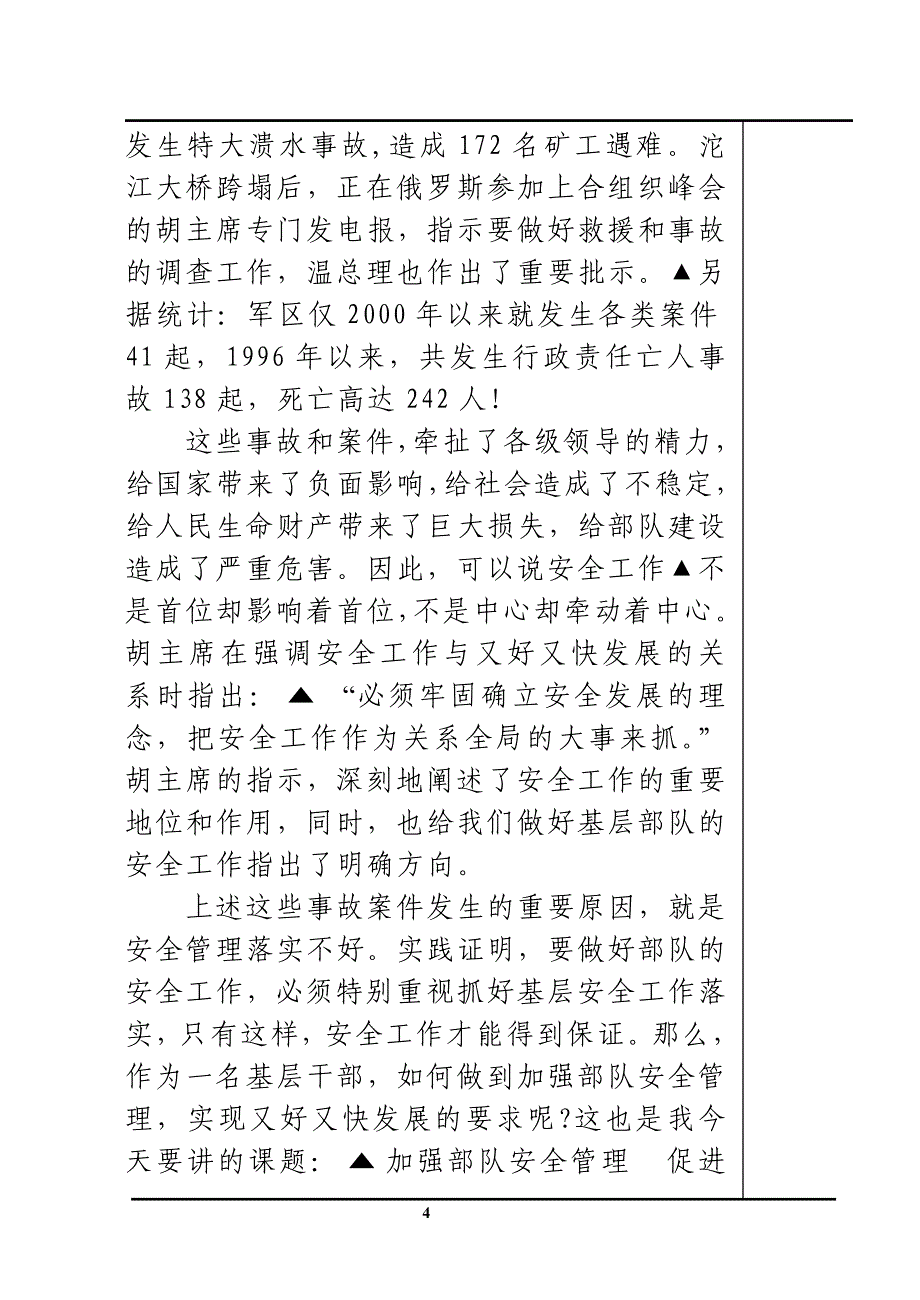 发生特大溃水事故,造成 172 名矿工遇难。沱
江大桥跨塌后，正在俄罗斯参加上合组织峰会
的胡主席专门发电报，指示要做好救援和事故
的调查工作，温总理也作出了重要批示。▲另
据统计：军区仅 2000 年以来就发生各类案件
41 起，1996 年以来，共发生行政责任亡人事
故 138 起，死亡高达 242 人!
这些事故和案件,牵扯了各级领导的精力,
给国家带来了负面影响,给社会造成了不稳定,
给人民生命财产带来了巨大损失，给部队建设
造成了严重危害。因此，可以说安全工作▲不
是首位却影响着首位,不是中心却牵动着中心。
胡主席在强调安全工作与又好又快发展的关
系时指出： ▲ “必须牢固确立安全发展的理
念，把安全工作作为关系全局的大事来抓。”
胡主席的指示，深刻地阐述了安全工作的重要
地位和作用，同时，也给我们做好基层部队的
安全工作指出了明确方向。
上述这些事故案件发生的重要原因，就是
安全管理落实不好。实践证明，要做好部队的
安全工作，必须特别重视抓好基层安全工作落
实,只有这样,安全工作才能得到保证。那么,
作为一名基层干部，如何做到加强部队安全管
理，实现又好又快发展的要求呢?这也是我今
天要讲的课题： ▲ 加强部队安全管理　促进
4